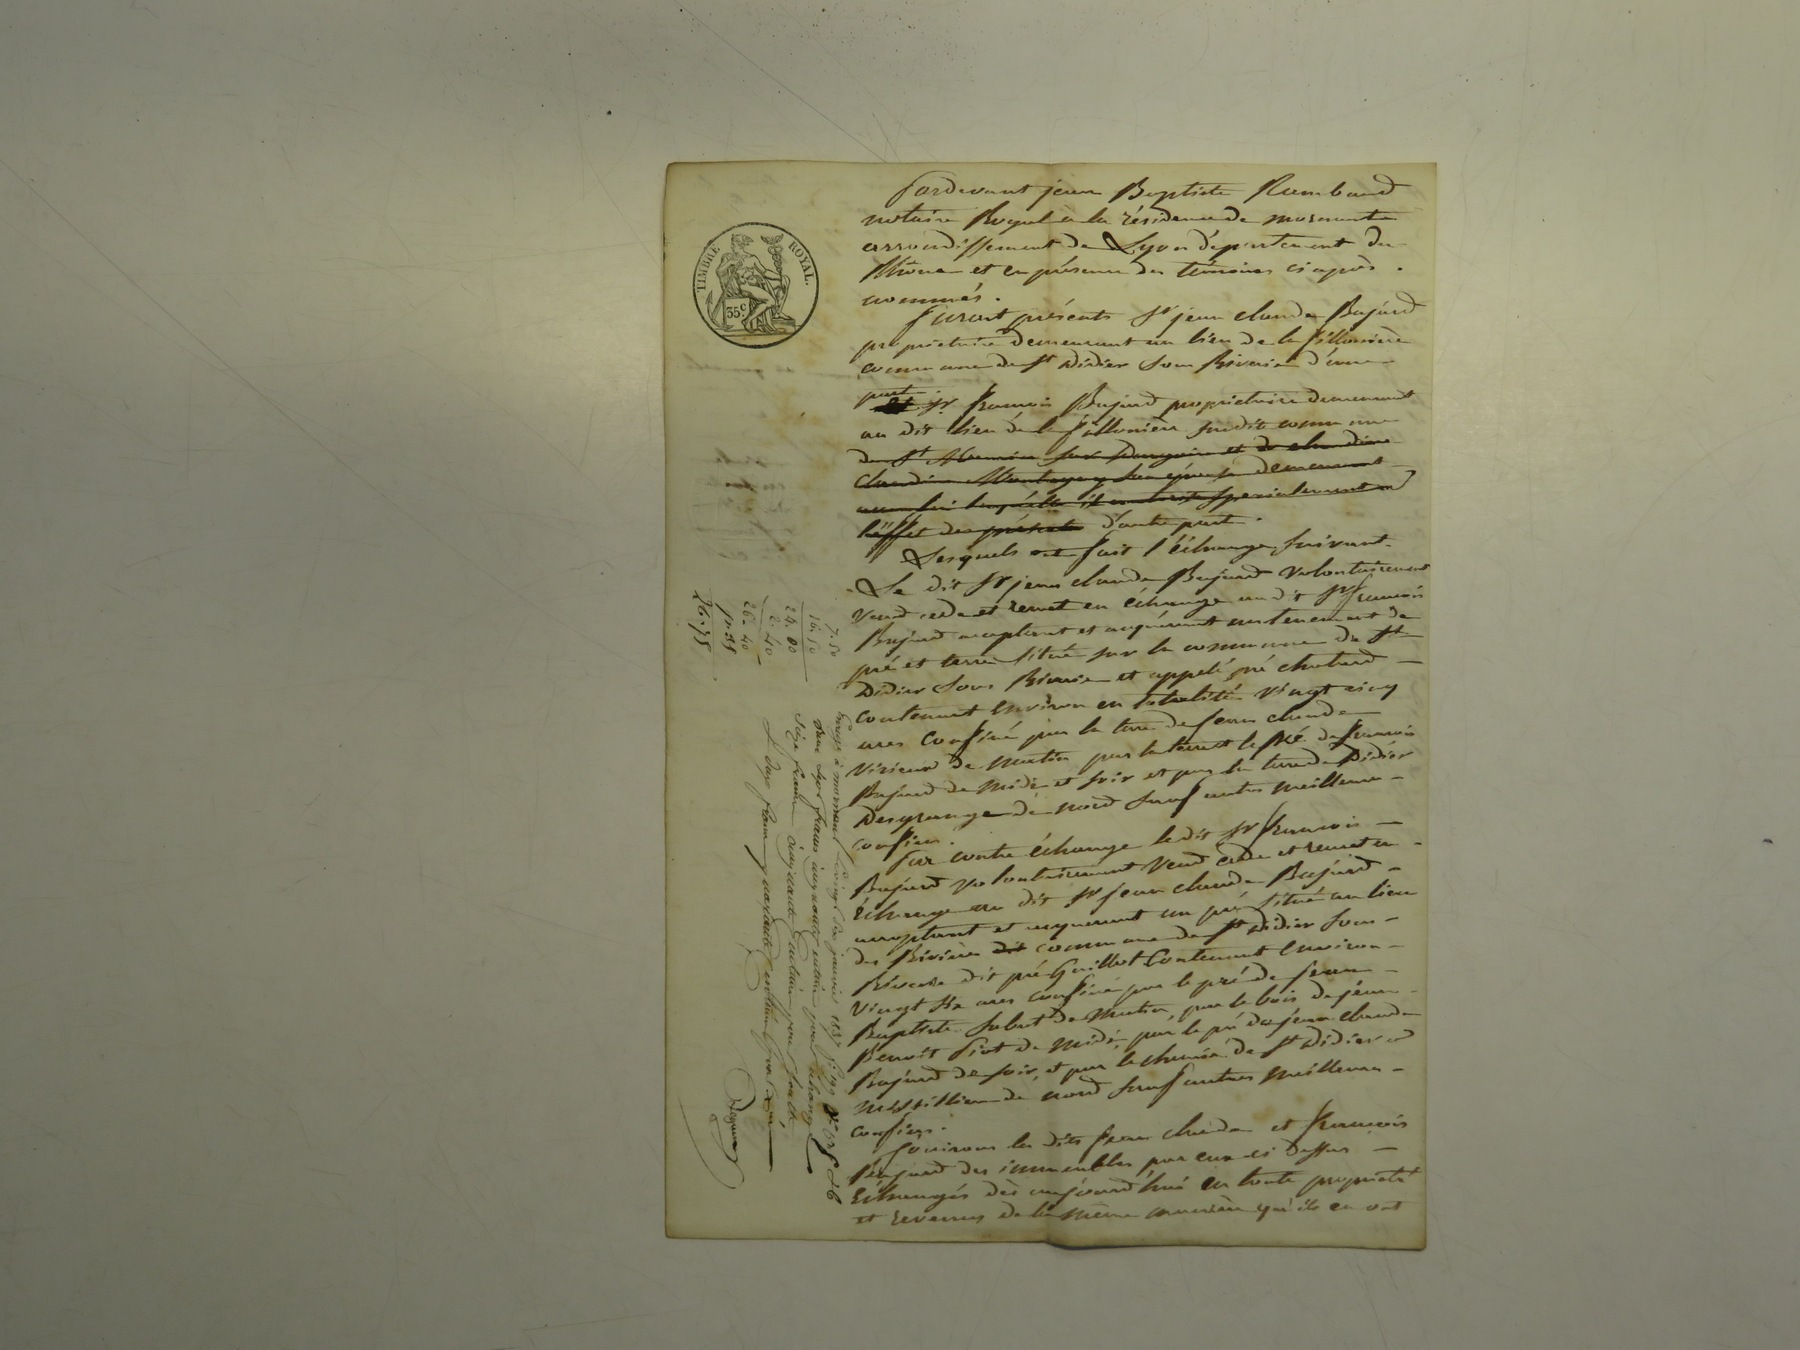 TIMBRE ROYAL.
35 c
Pardevant jean Baptiste Rambaud
notaire Royal a la résidence de mornant
arrondissement de Lyon département du
Rhône et en présence des témoins ci après
nommés.
furent présents Sr jean claude Bajard
propriétaire demeurant au lieu de la fillonière
commune de St Didier Sous Riverie d'une
part
et Sr francois Bajard propriétaire demeurant
au dit lieu de la fillonière susdite commune
de St Maurice sur Dargoire et de claudine
claudine son épouse demeurant
avec lui laquelle il autorise spécialement a
l'effet des présentes d'autre part.
Lesquels ont fait l'échange suivant.
Le dit Sr jean claude Bajard volontairement
vend cède et remet en échange au dit Sr francois
Bajard acceptant et acquérant un tenement de
pré et terre situé sur la commune de St
Didier Sous Riverie et appelé pré
contenant environ en totalité vingt cinq
ares confiné par la terre de jean claude
Virieux de matin par la terre et le pré de francois
Bajard de midi et soir et par la terre de Didier
Desgrange de nord sauf autres meilleurs
confins.
Par contre échange le dit Sr francois
Bajard volontairement vend cède et remet en
échange au dit Sr jean claude Bajard
acceptant et acquérant un pré situé au lieu
des Rivières dit commune de St Didier Sous
Riverie dit pré Guillot contenant environ
vingt ares confiné par le pré de jean
Baptiste de matin, par le bois de jean
Benoit Piot de midi, par le pré de jean claude
Bajard de soir, et par le chemin de St Didier a
de nord sauf autres meilleurs
confins.
Jouiront les dits jean claude et francois
Bajard des immeubles par eux ci dessus
échangés dès aujourd'hui en toute propriété
et revenus de la même manière qu'ils en ont
7.50
16.50
24.00
2.40
26.40
26.75
à mornant le janvier 1837
francs
francs cinquante centimes pour soulte